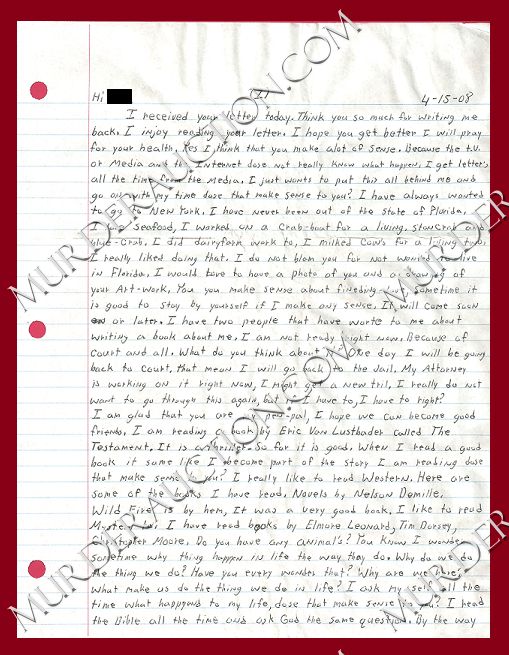 Hi
(1)
4-15-08
I received your letter today. Think you so much for writing me
back. I injoy reading your letter. I hope you get better I will pray
for your health. Yes I think that you make alot of sense. Because the t.v.
or Media and the Internet dose not really know what happen. I get letter's
all the time from the Media. I just wants to put this all behind me and
go on with my time dose that make sense to you? I have always wanted
to go to New York. I have never been out of the State of Florida.
I Seafood, I worked on a Crab-boat for a living. Stone Crab and
blue-Crab. I did dairyfarm work to, I milked Cow's for a living two.
I really liked doing that. I do not blam you for not wanted to live
in Florida. I would love to have a photo of you and a drawing of
your Art-work. You you make sense about finding out, sometime it
is good to stay by yourself if I make any sense. It will come soon
or later. I have two people that have worte to me about
writing a book about me. I am not ready right now. Because of
Court and all. What do you think about it. One day I will be going
back to Court, that mean I will go back to the Jail. My Attorney
is working on it right now, I might get a new tril, I really do not
want to go through this again, but I have to, I have to right?
I am glad that you are my pen-pal, I hope we can become good
friends. I am reading a book by Eric Van Lustbader called The
Testament. It is a thriller. So far it is good. When I read a good
book it same like I become part of the story I am reading dose
that make sense to you? I really like to read Western. Here are
some of the books I have read. Novels by Nelson Demille.
Wild Fire is by hem, It was a very good book, I like to read
Mysteries. I have read books by Elmore Leonard, Tim Dorsey,
Christopher Moore. Do you have any animal's? You know I wonder
sometime why thing happen in life the way they do. Why do we do
the thing we do? Have you every wonder that? Why are we here,
What make us do the thing we do in life? I ask my self all the
time what happpend to my life, dose that make sense to you? I read
the Bible all the time and ask God the same question. By the way
MURDERAUCTION.COM
MURDERAUCTION.COM
MURDERAUCTION.COM
MURDER
MURDER